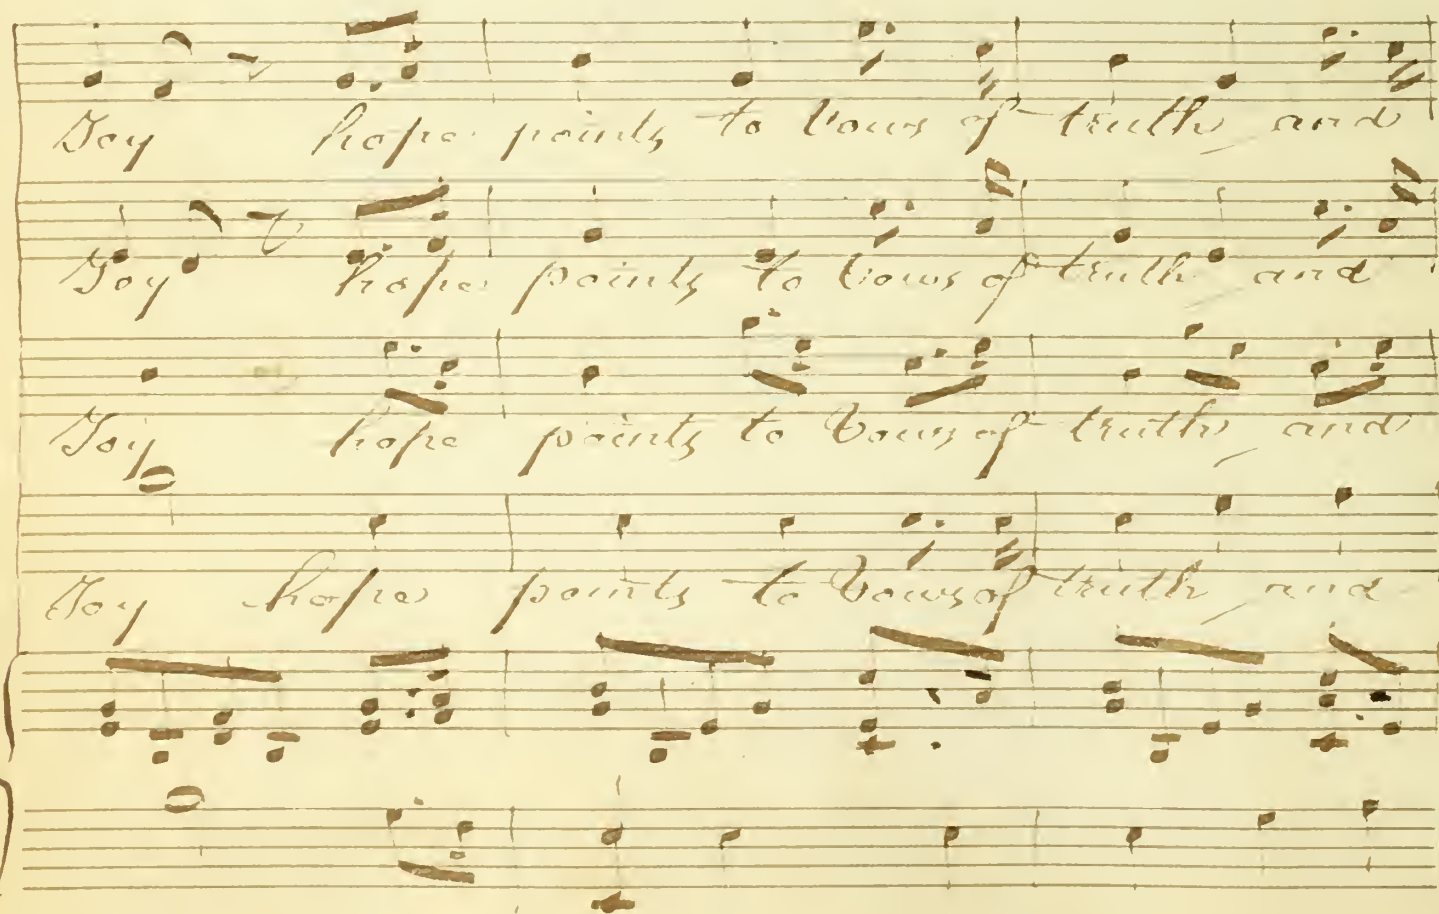 Joy hope points to vows of truth and
Joy hope points to vows of truth and
Joy hope points to vows of truth and
Joy hope points to vows of truth and